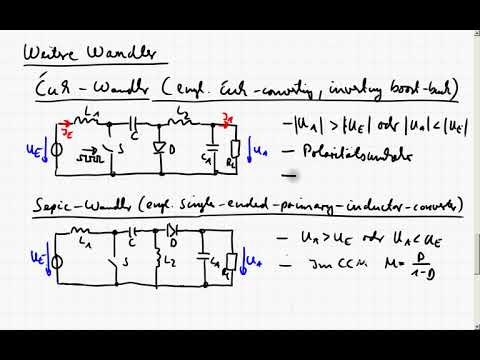 Weitere Wandler
Ćuk-Wandler (engl. Ćuk-converting, inverting boost-buck)
L1 C L2 IA
IE S D CA RL
UE UA
- |UA| > |UE| oder |UA| < |UE|
- Polaritätsumkehr
-
Sepic-Wandler (engl. single-ended-primary-inductor-converter)
L1 C D
UE S L2 CA RL UA
- UA > UE oder UA < UE
- Im CCM M = D/(1-D)